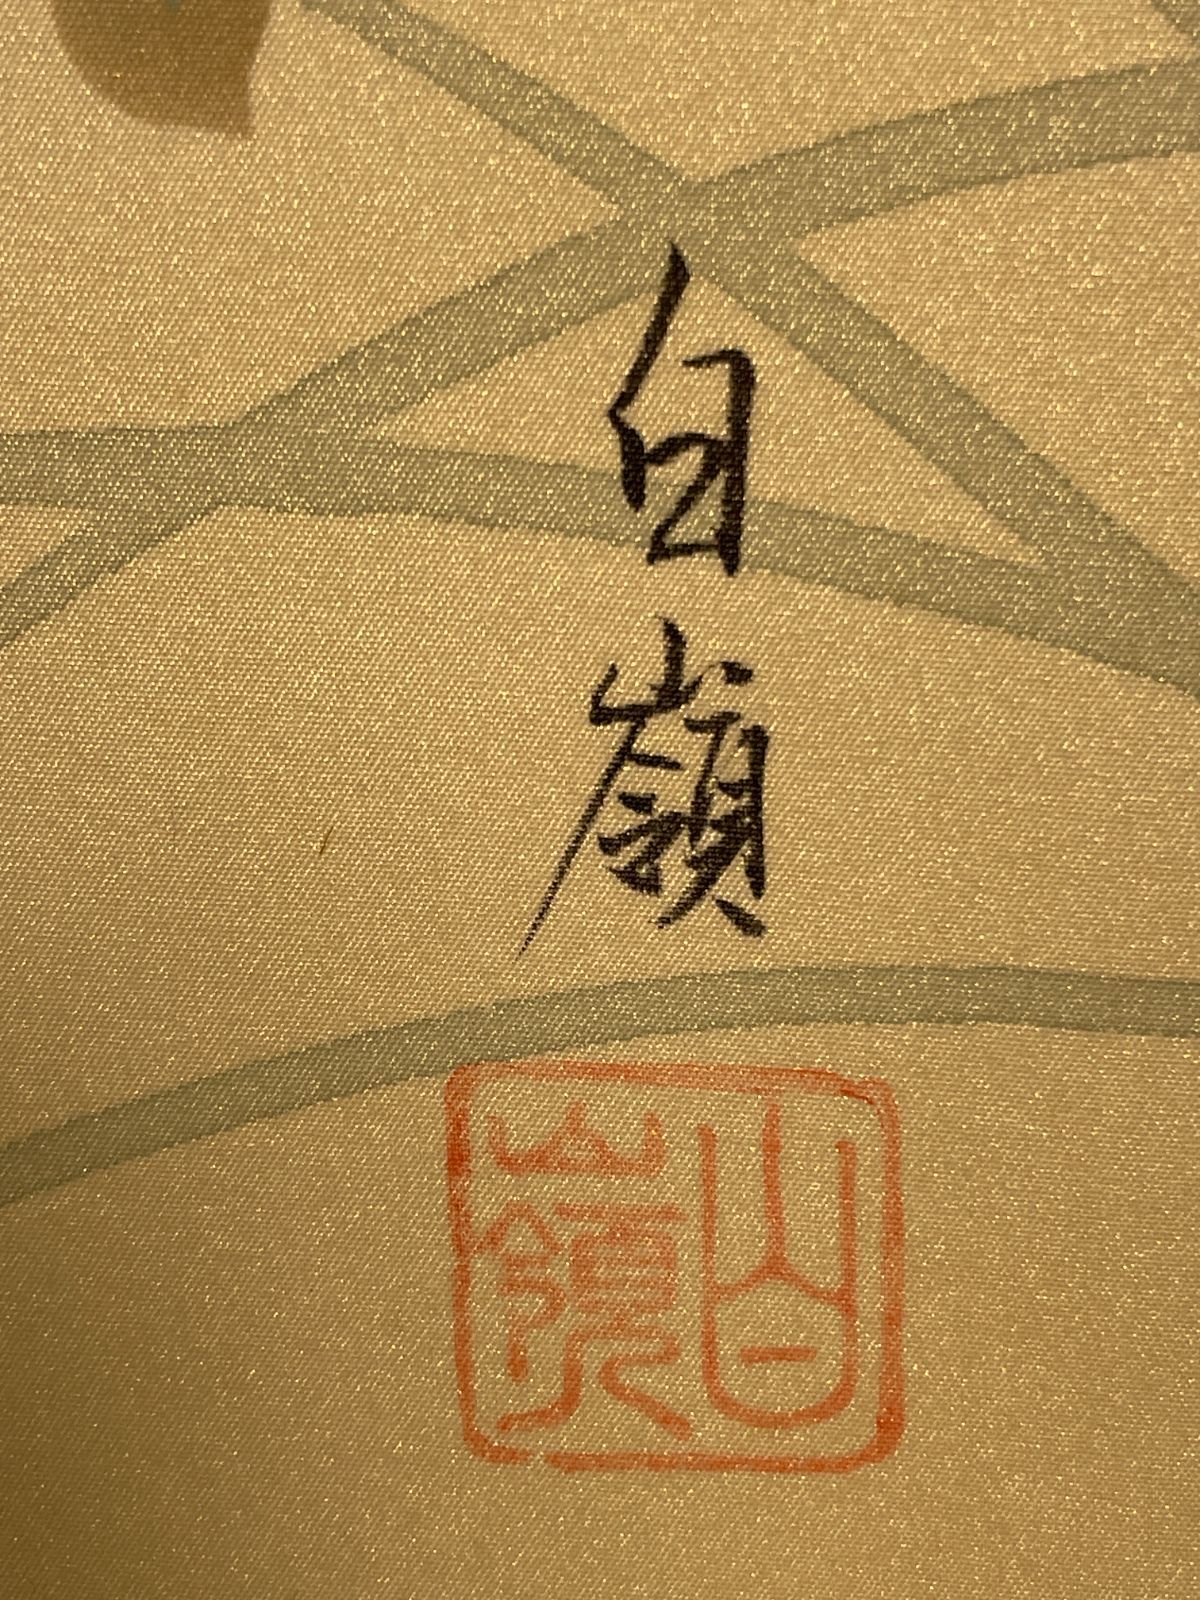 白嶺
白嶺